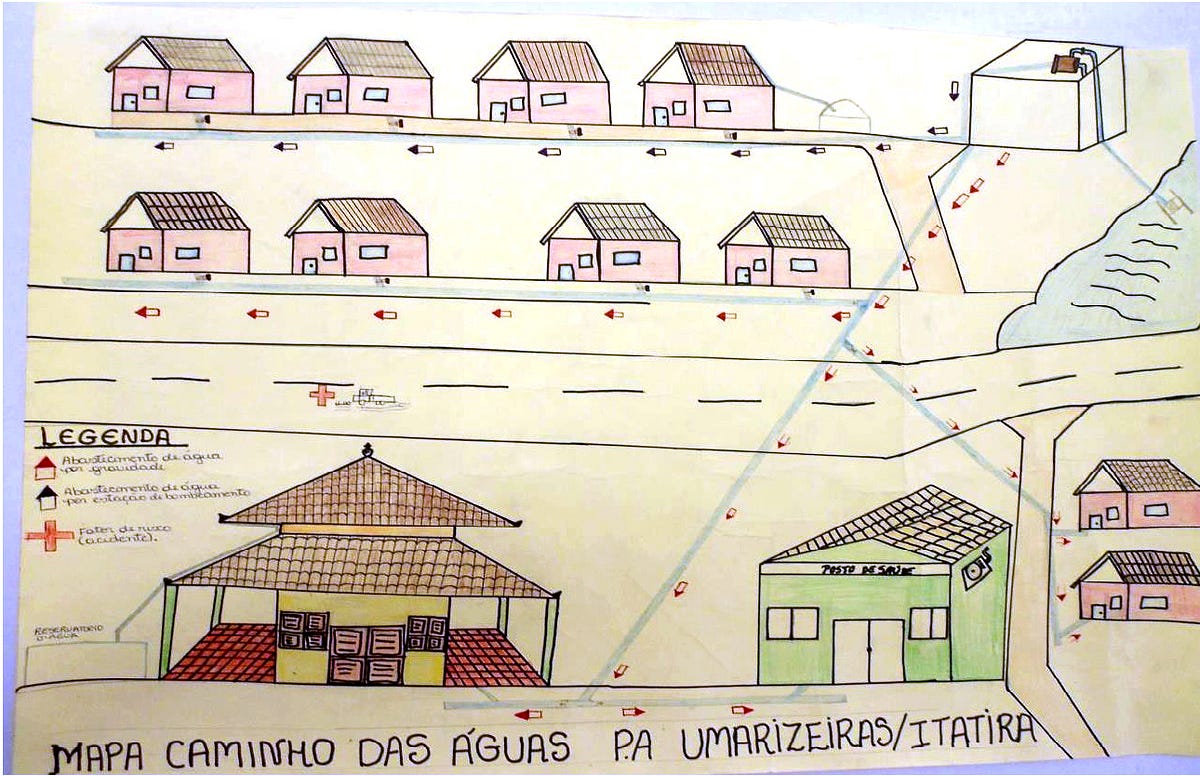 LEGENDA
Abastecimento de água
por gravidade
Abastecimento de água
por estação de bombeamento
Fator de risco
(acidente).
RESERVATORIO
D'ÁGUA
POSTO DE SAÚDE
MAPA CAMINHO DAS ÁGUAS P.A UMARIZEIRAS/ITATIRA